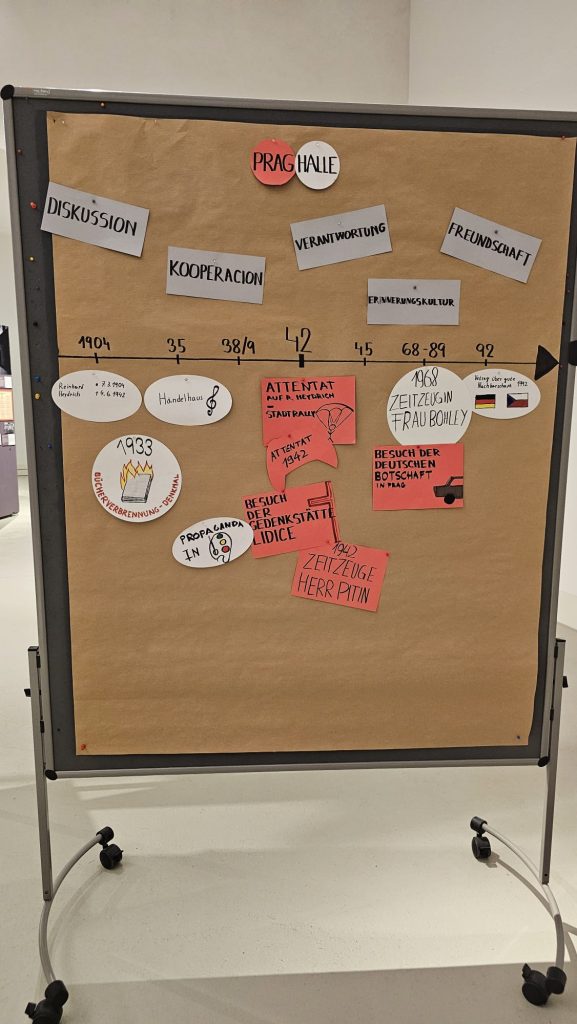 PRAG HALLE
DISKUSSION
KOOPERACION
VERANTWORTUNG
ERINNERUNGSKULTUR
FREUNDSCHAFT
1904 35 38/9 42 45 68-89 92
Reinhard
Heydrich
* 7.3.1904
† 4.6.1942
Händelhaus
ATTENTAT
AUF R. HEYDRICH
STADTRALLY
ATTENTAT
1942
1968
ZEITZEUGIN
FRAU BOHLEY
Vertrag über gute
Nachbarschaft 1992
1933
BÜCHERVERBRENNUNG-DENKMAL
BESUCH DER
DEUTSCHEN
BOTSCHAFT
IN PRAG
PROPAGANDA
IN
BESUCH
DER
GEDENKSTÄTTE
LIDICE
1942
ZEITZEUGE
HERR PITIN